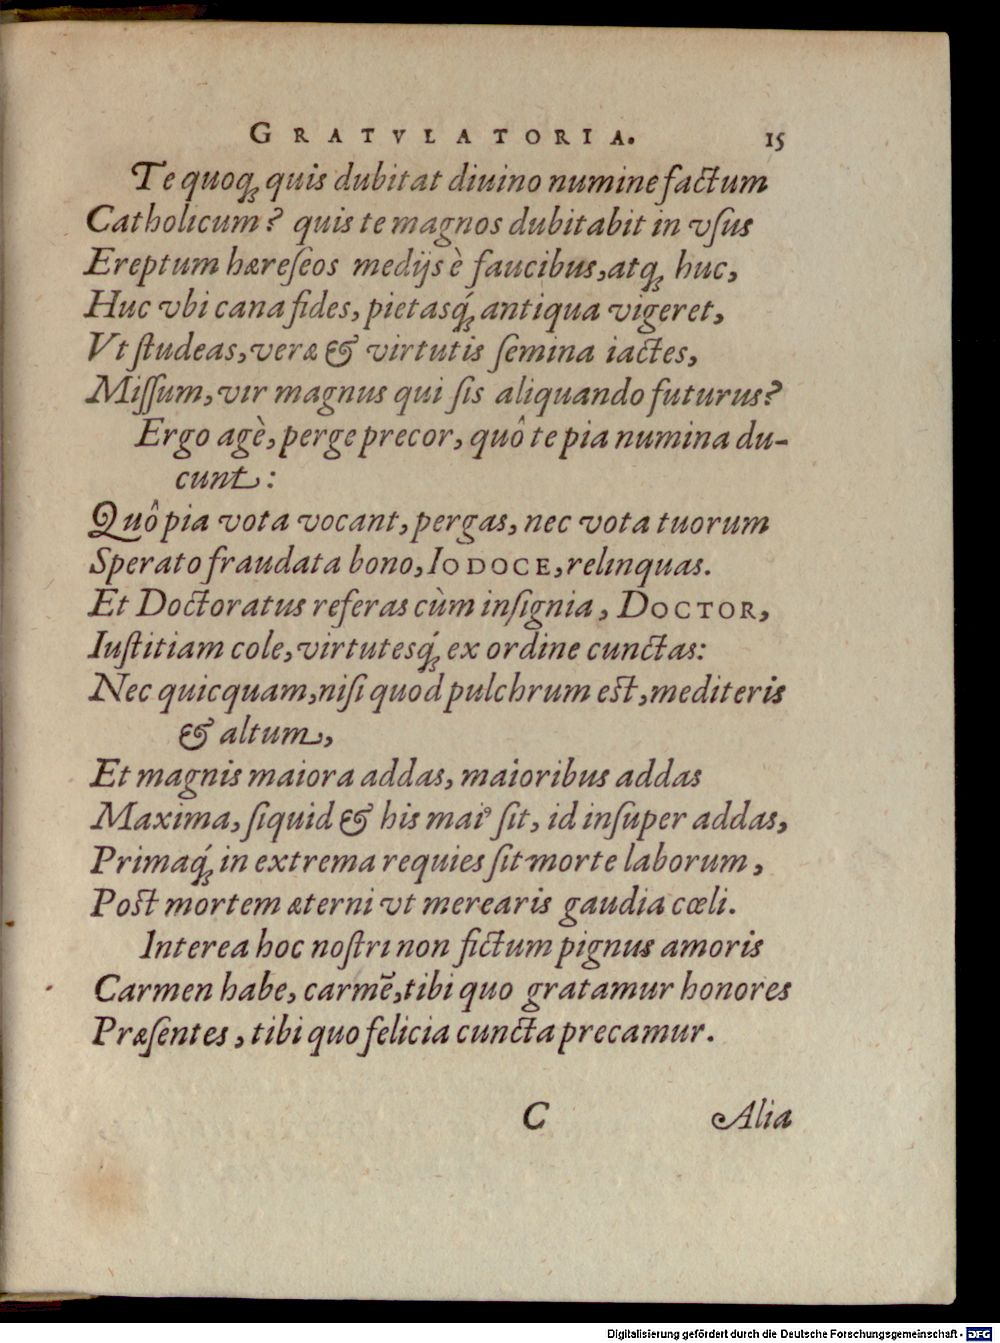 GRATVLATORIA. 15
Te quoq; quis dubitat diuino numine factum
Catholicum? quis te magnos dubitabit in vſus
Ereptum hæreſeos medijs è faucibus, atq; huc,
Huc vbi cana fides, pietasq́; antiqua vigeret,
Vt ſtudeas, veræ & virtutis ſemina iactes,
Miſſum, vir magnus qui ſis aliquando futurus?
Ergo agè, perge precor, quô te pia numina du-
cunt:
Quô pia vota vocant, pergas, nec vota tuorum
Sperato fraudata bono, IODOCE, relinquas.
Et Doctoratus referas cùm inſignia, DOCTOR,
Iuſtitiam cole, virtutesq́; ex ordine cunctas:
Nec quicquam, niſi quod pulchrum eſt, mediteris
& altum,
Et magnis maiora addas, maioribus addas
Maxima, ſiquid & his maiꝰ ſit, id inſuper addas,
Primaq́; in extrema requies ſit morte laborum,
Poſt mortem æterni vt merearis gaudia cœli.
Interea hoc noſtri non fictum pignus amoris
Carmen habe, carmē, tibi quo gratamur honores
Præſentes, tibi quo felicia cuncta precamur.
C Alia
Digitalisierung gefördert durch die Deutsche Forschungsgemeinschaft - DFG